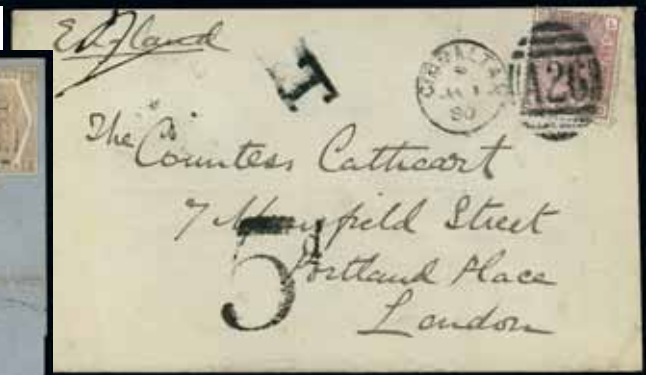 England
T
GIBRALTAR
JA 1
80
A26
The Countess Cathcart
7 Mansfield Street
5d
Portland Place
London